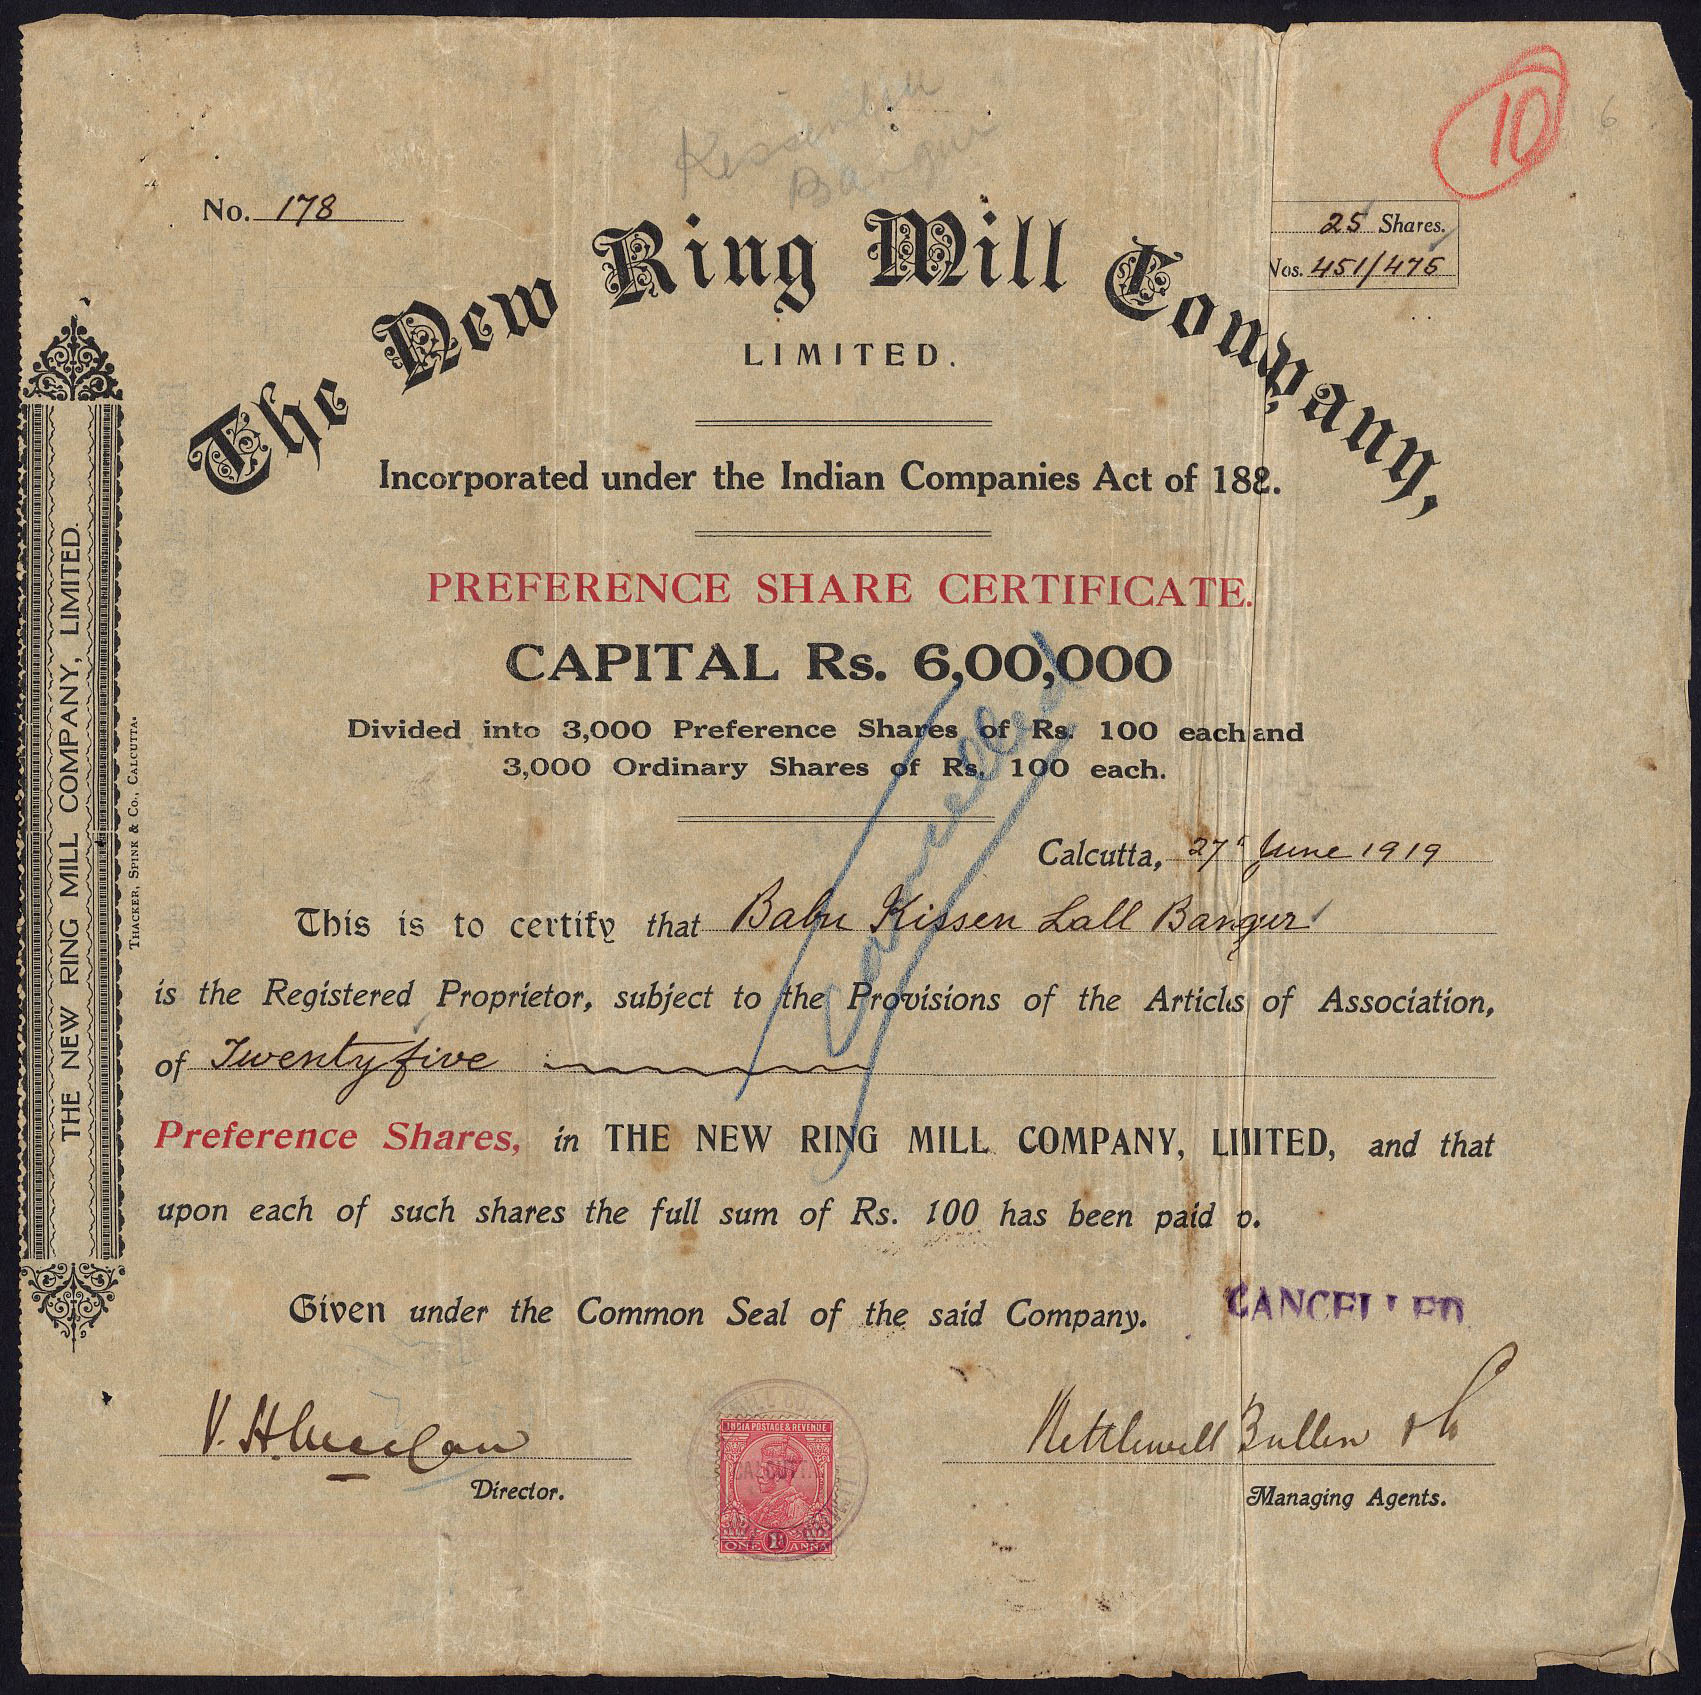 10
6
Kissenlall
Bangur
No. 178
25 Shares.
Nos. 451/475
The New Ring Mill Company,
LIMITED.
Incorporated under the Indian Companies Act of 188.
PREFERENCE SHARE CERTIFICATE.
CAPITAL Rs. 6,00,000
Divided into 3,000 Preference Shares of Rs. 100 each and
3,000 Ordinary Shares of Rs. 100 each.
Cancelled
Calcutta, 27th June 1919
This is to certify that Babu Kissen Lall Bangur
is the Registered Proprietor, subject to the Provisions of the Articles of Association,
of Twenty five
Preference Shares, in THE NEW RING MILL COMPANY, LIMITED, and that
upon each of such shares the full sum of Rs. 100 has been paid
Given under the Common Seal of the said Company.
CANCELLED
Director.
INDIA POSTAGE & REVENUE
CALCUTTA
ONE 1A ANNA
Kettlewell Bullen & Co
Managing Agents.
THE NEW RING MILL COMPANY, LIMITED.
THACKER, SPINK & CO., CALCUTTA.